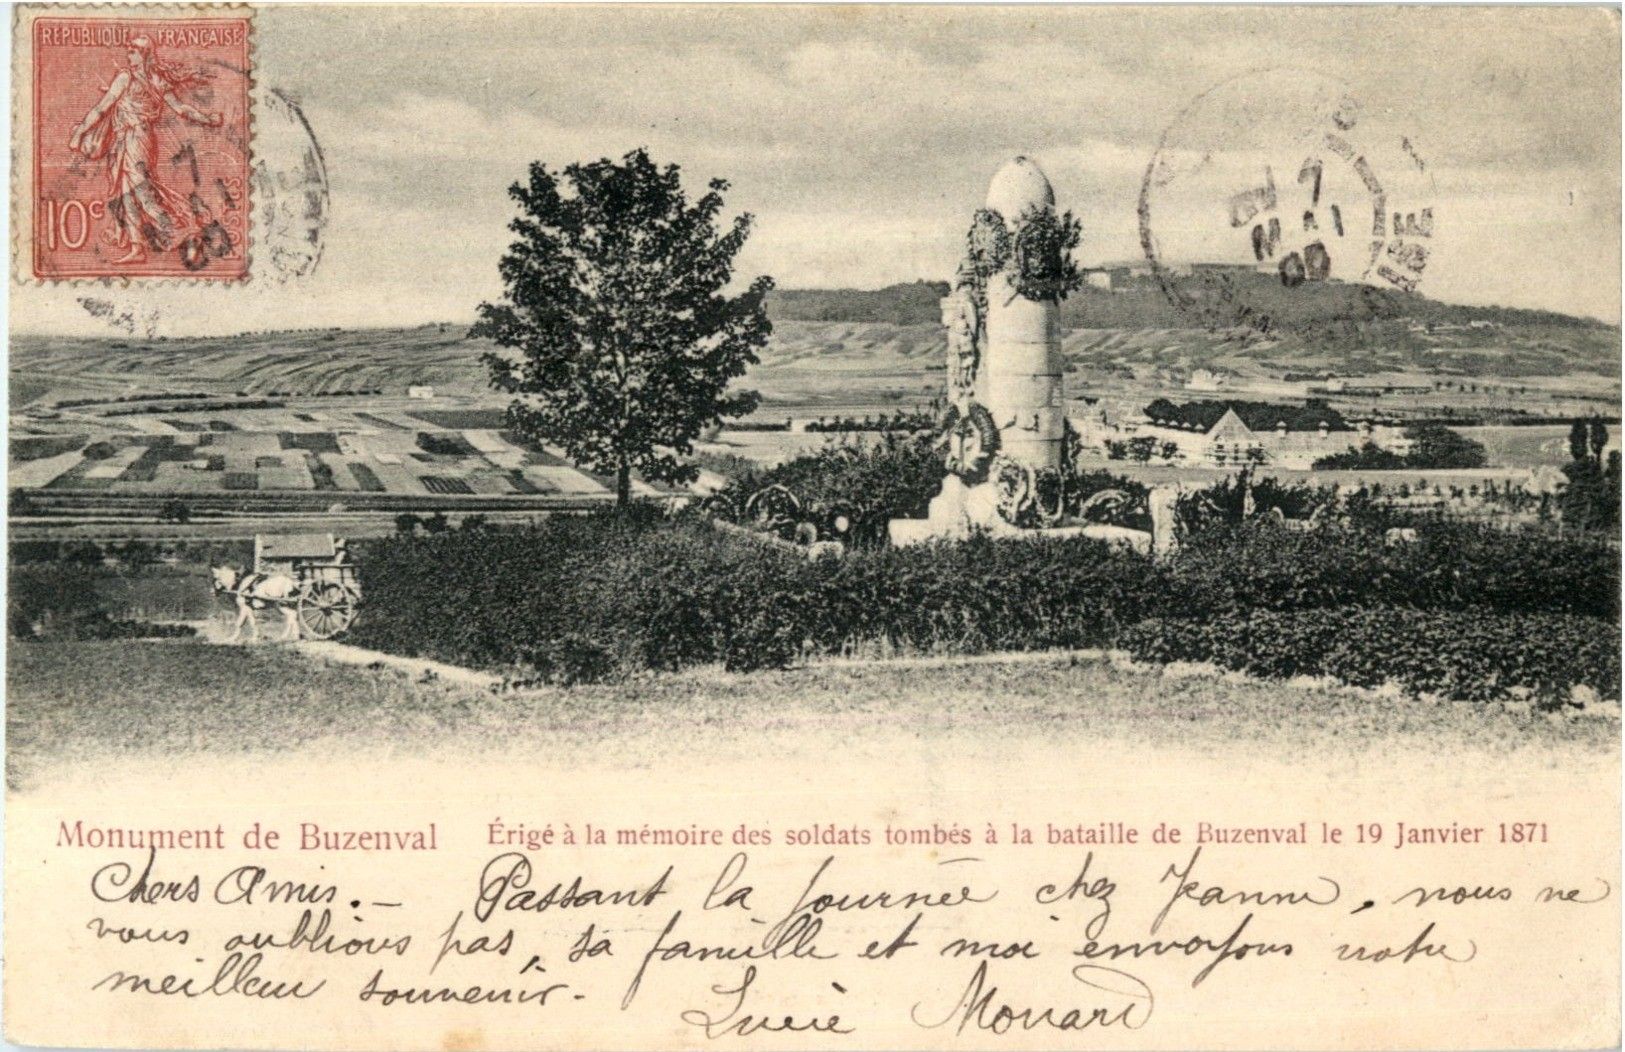 RÉPUBLIQUE FRANÇAISE
10c
POSTES
7
MAI
00
7
MAI
00
Monument de Buzenval Érigé à la mémoire des soldats tombés à la bataille de Buzenval le 19 Janvier 1871
Chers Amis. – Passant la journée chez Jeanne, nous ne
vous oublions pas, sa famille et moi envoyons notre
meilleur souvenir.
Lucie Monard